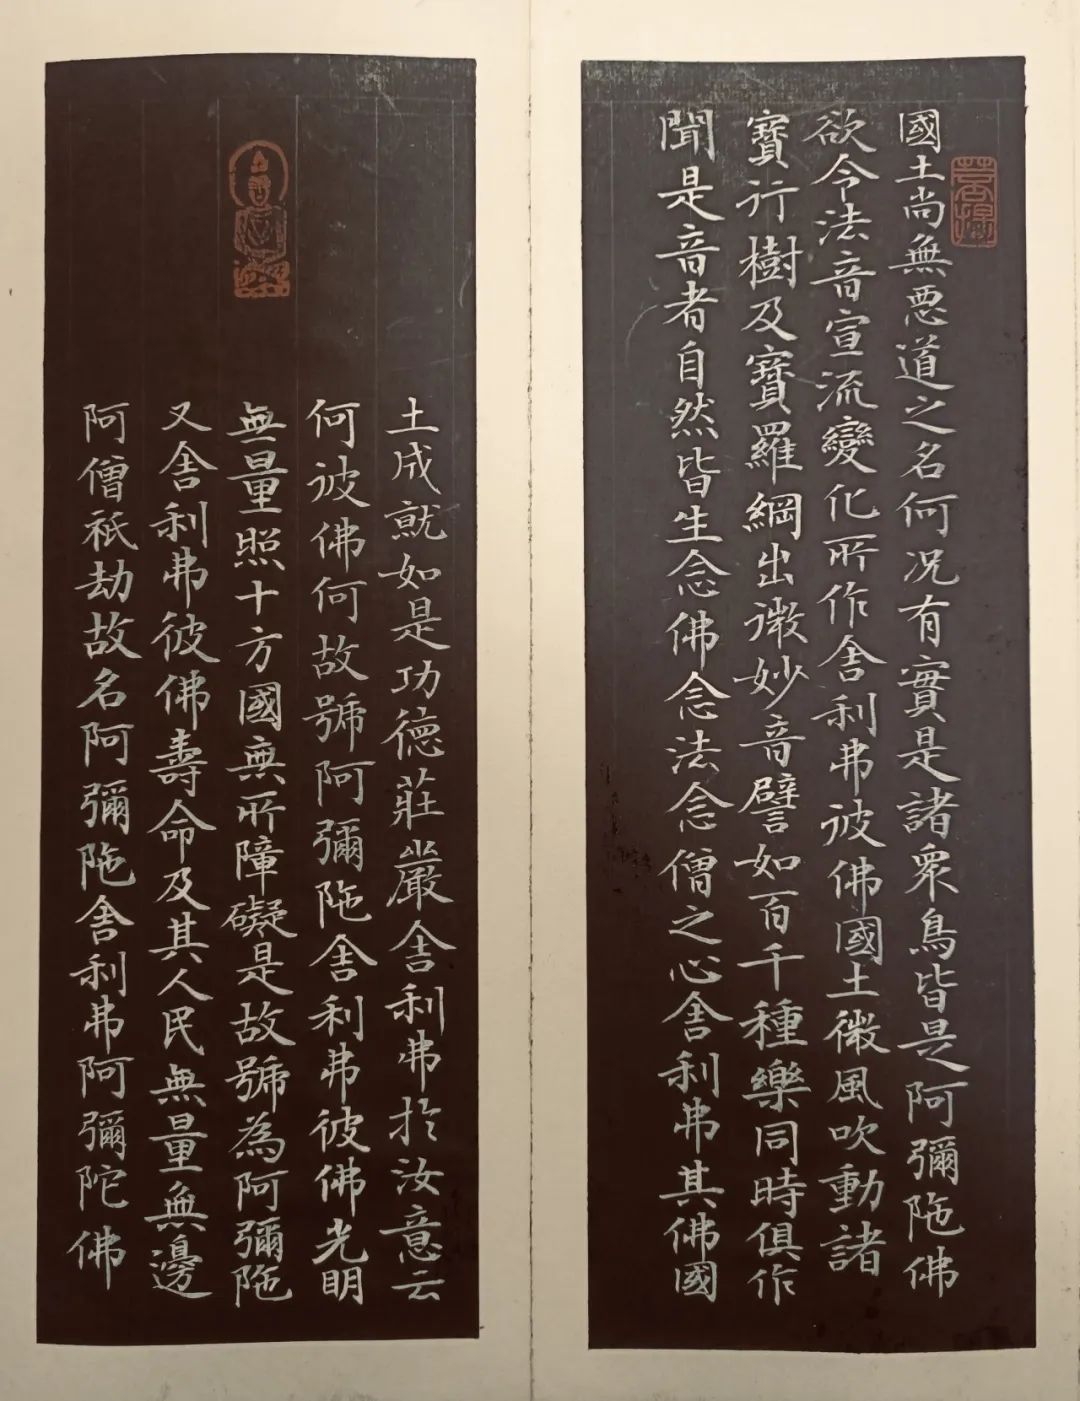 菩提
國土尚無惡道之名何況有實是諸眾鳥皆是阿彌陁佛
欲令法音宣流變化所作舍利弗彼佛國土微風吹動諸
寶行樹及寶羅網出微妙音譬如百千種樂同時俱作
聞是音者自然皆生念佛念法念僧之心舍利弗其佛國
土成就如是功德莊嚴舍利弗於汝意云
何彼佛何故號阿彌陁舍利弗彼佛光明
無量照十方國無所障礙是故號為阿彌陁
又舍利弗彼佛壽命及其人民無量無邊
阿僧祇劫故名阿彌陁舍利弗阿彌陀佛